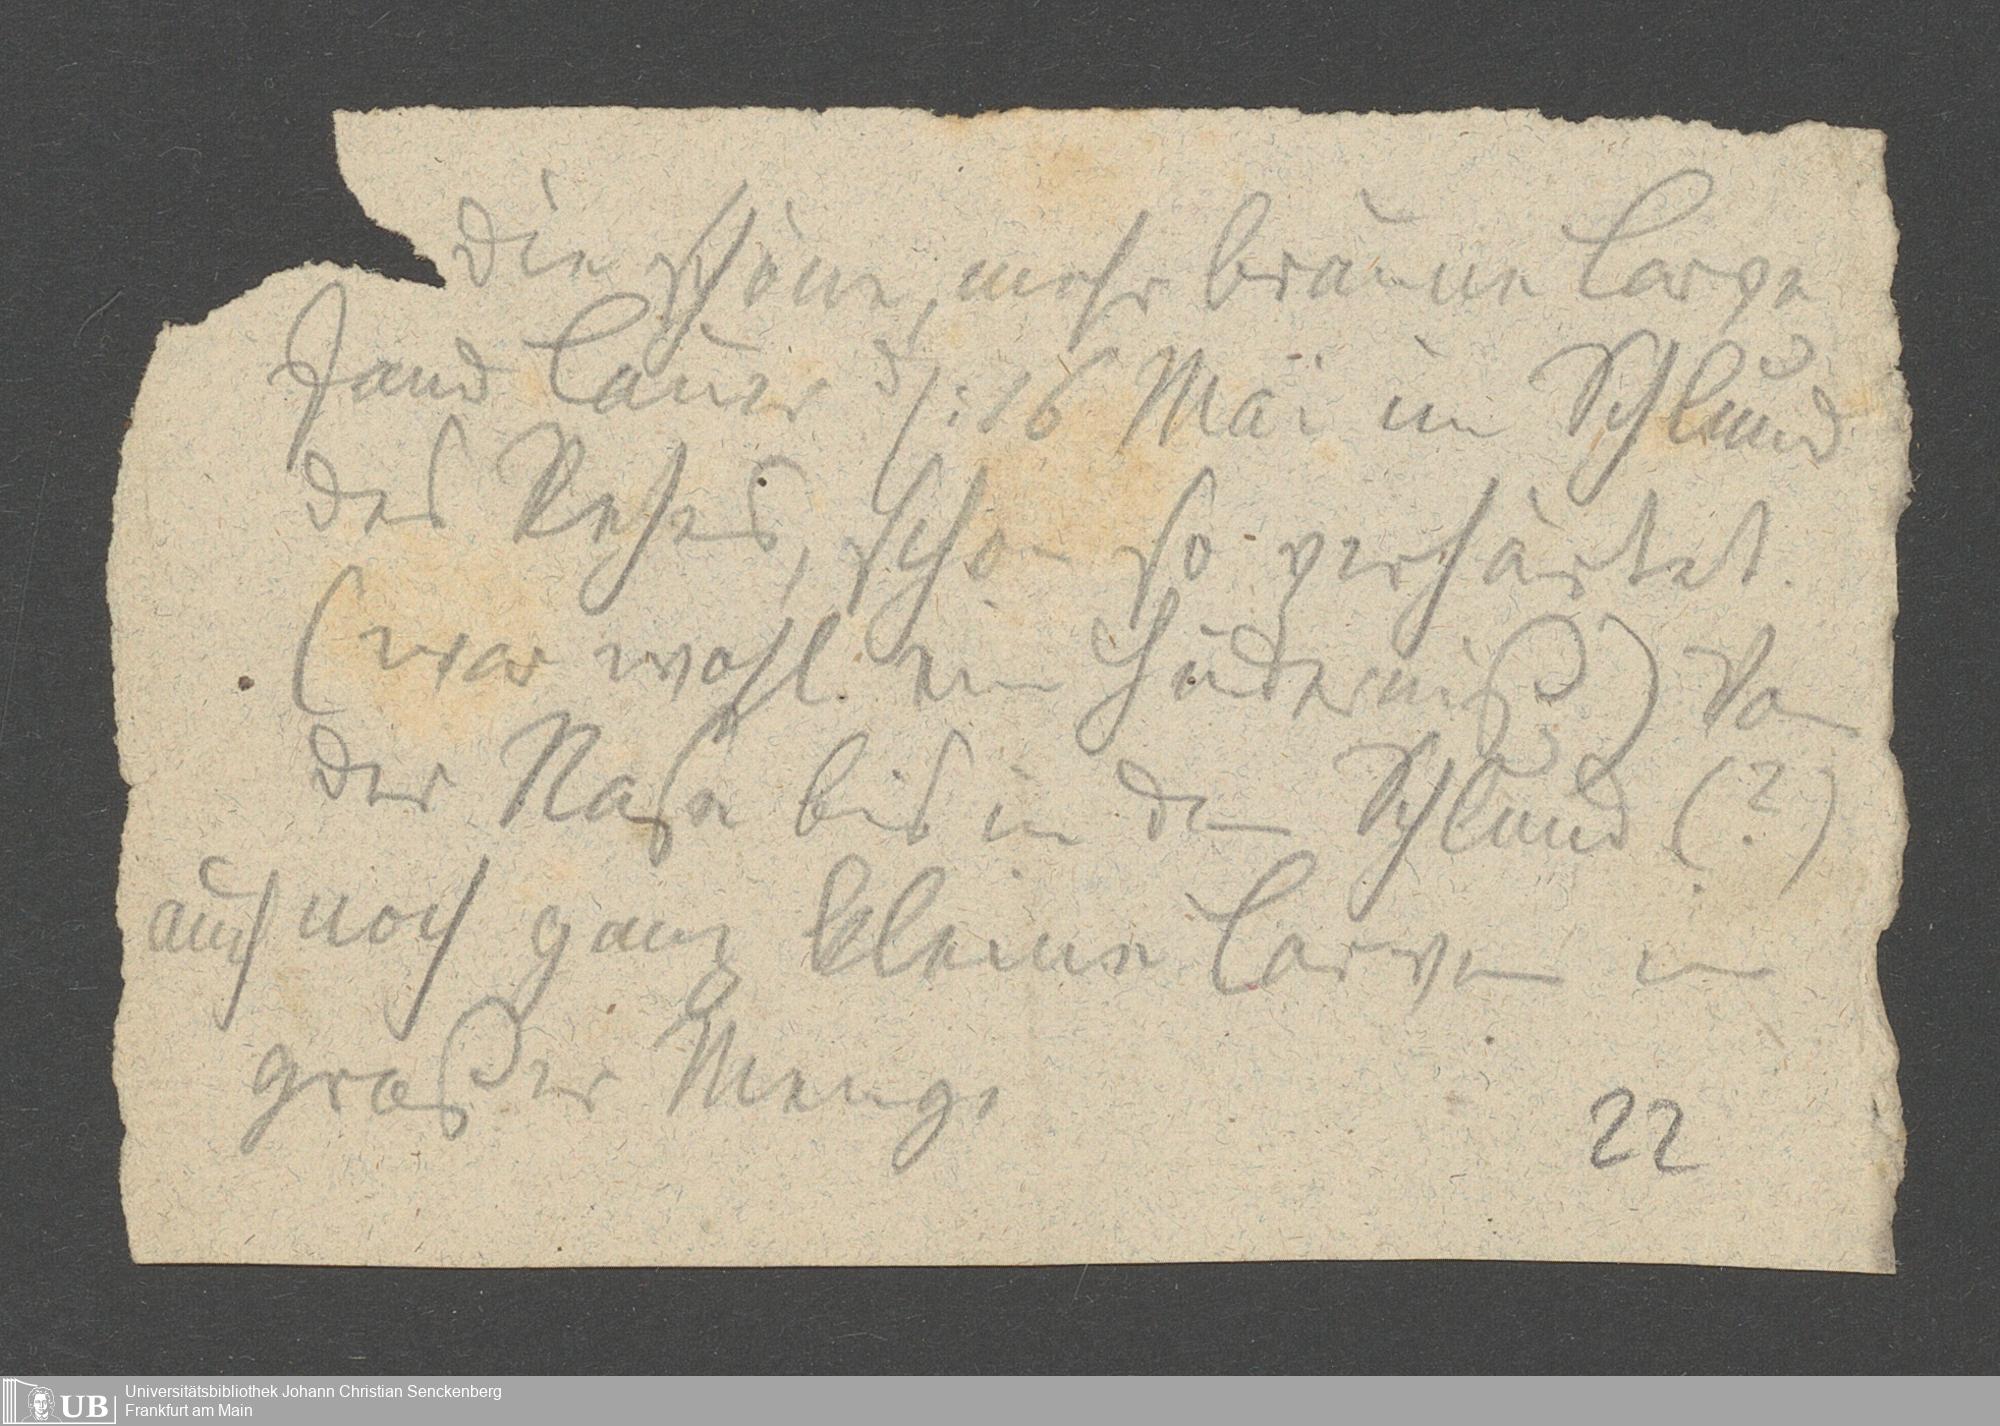 die schöne, mehr braune Larve
fand Lauer d/: 16 Mai im Schlund
des Rehes, schon so verhärtet
(war wohl ein Hinderniß) Von
der Nase bis in den Schlund (?)
auch noch ganz kleine Larven in
großer Menge
22
UB
Universitätsbibliothek Johann Christian Senckenberg
Frankfurt am Main